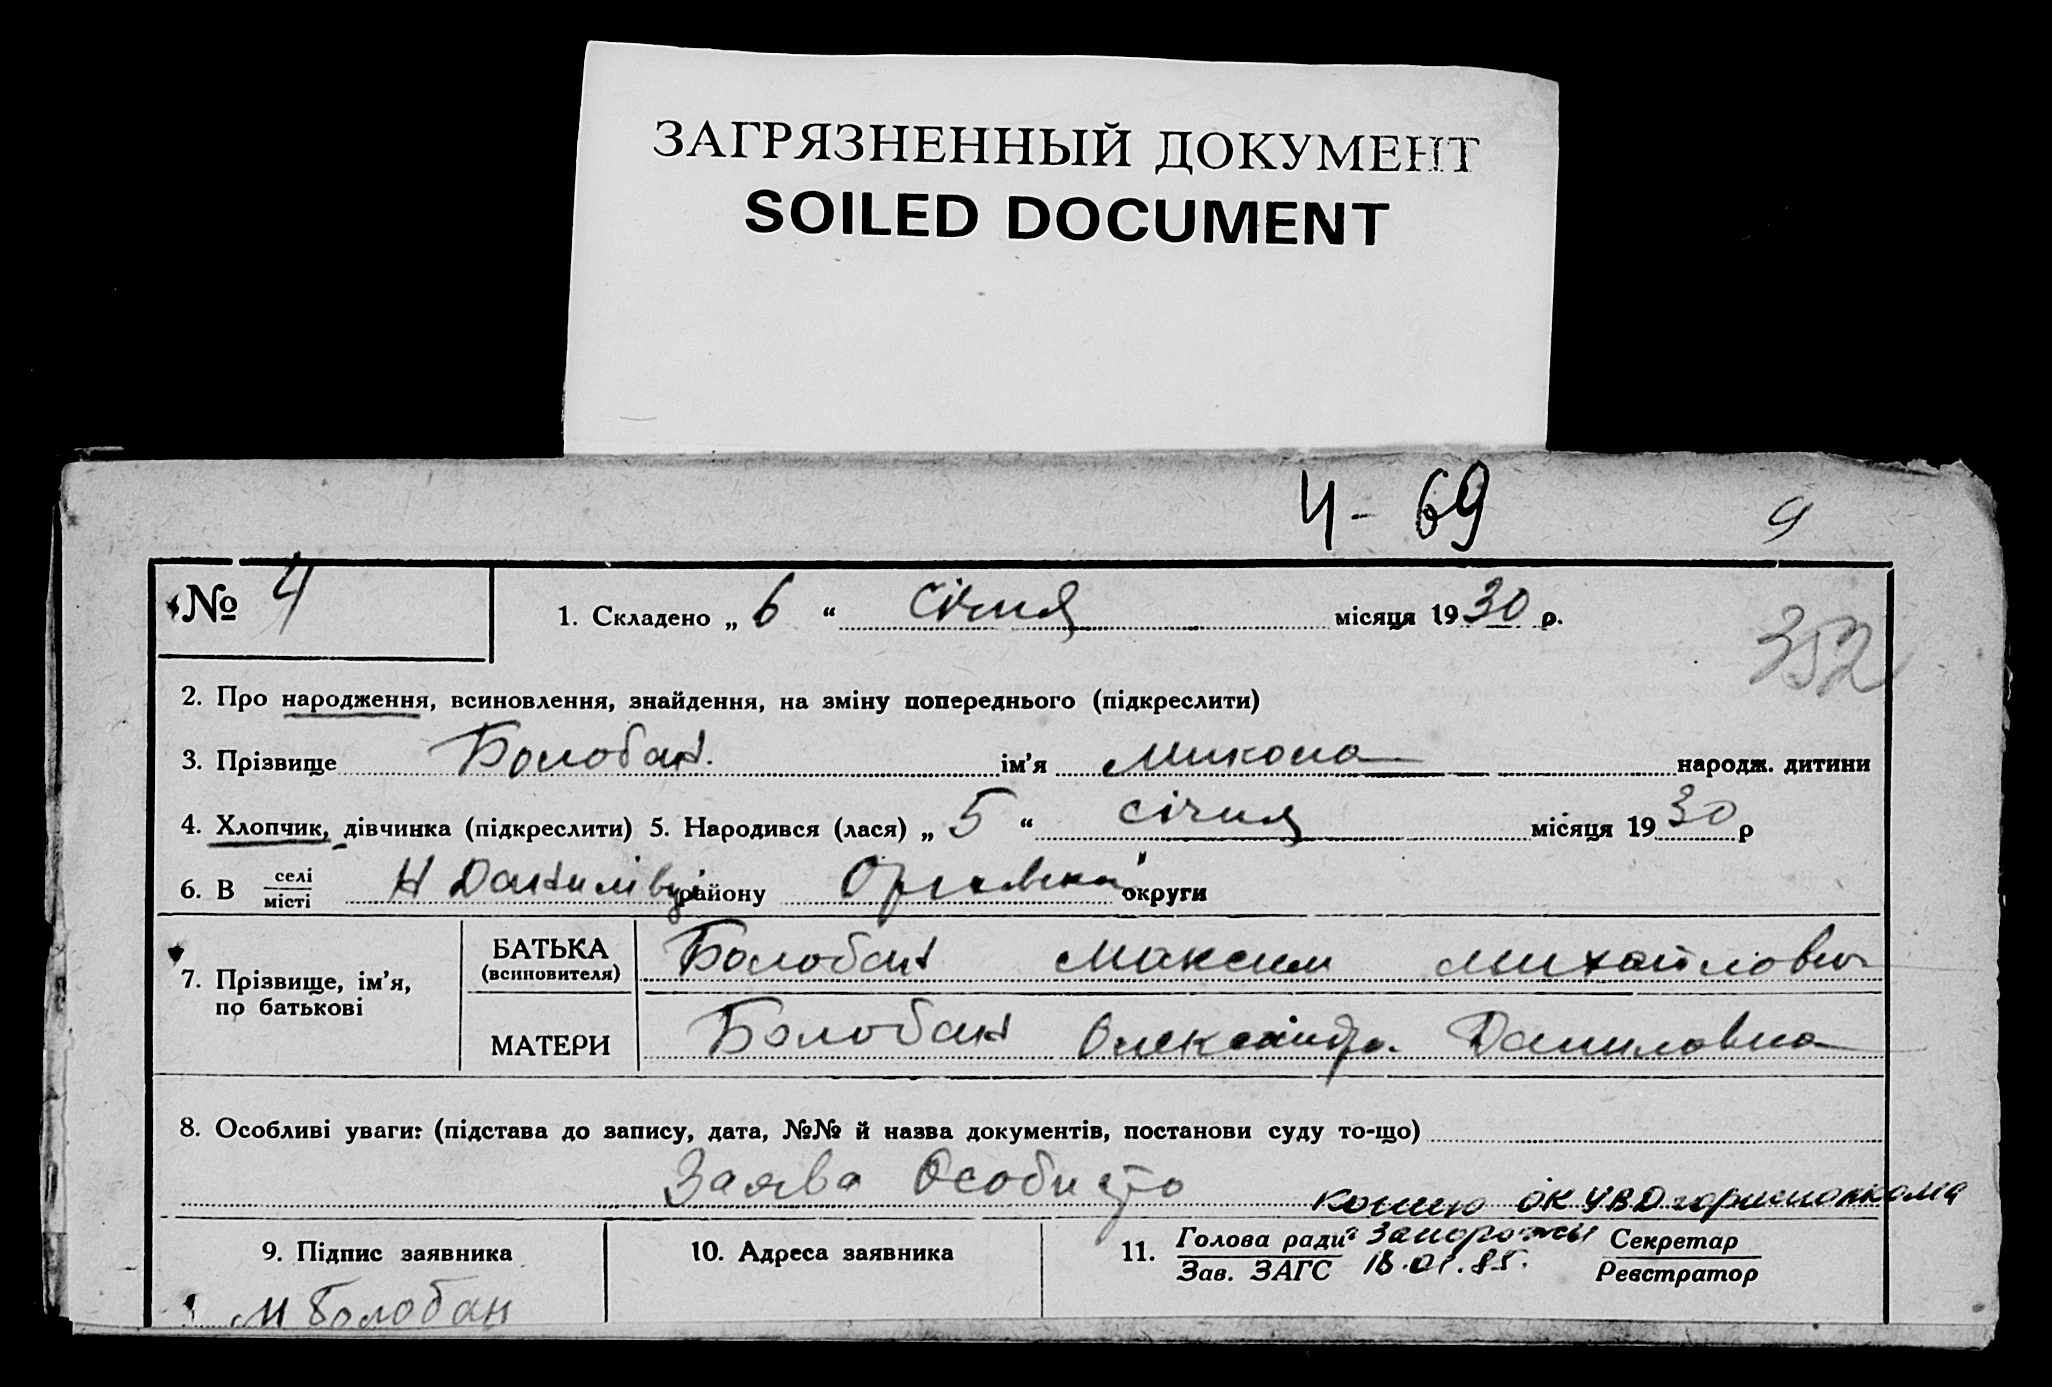 ЗАГРЯЗНЕННЫЙ ДОКУМЕНТ
SOILED DOCUMENT
4-69
9
№ 4
1. Складено „ 6 “ Січня місяця 1930 р.
352
2. Про народження, всиновлення, знайдення, на зміну попереднього (підкреслити)
3. Прізвище Болобан. ім'я Микола народж. дитини
4. Хлопчик, дівчинка (підкреслити) 5. Народився (лася) „ 5 “ січня місяця 1930 р
6. В селі місті Н Данилівці району округи
7. Прізвище, ім'я, по батькові
БАТЬКА (всиновителя) Болобан Максим Михайлович
МАТЕРИ Болобан Олександра Даниловна
8. Особливі уваги: (підстава до запису, дата, №№ й назва документів, постанови суду то-що)
Заява Особисто
копию ОК УВД горисполкома
Запорожья
18.01.85.
9. Підпис заявника
10. Адреса заявника
11. Голова ради Зав. ЗАГС
Секретар Реєстратор
М Болобан